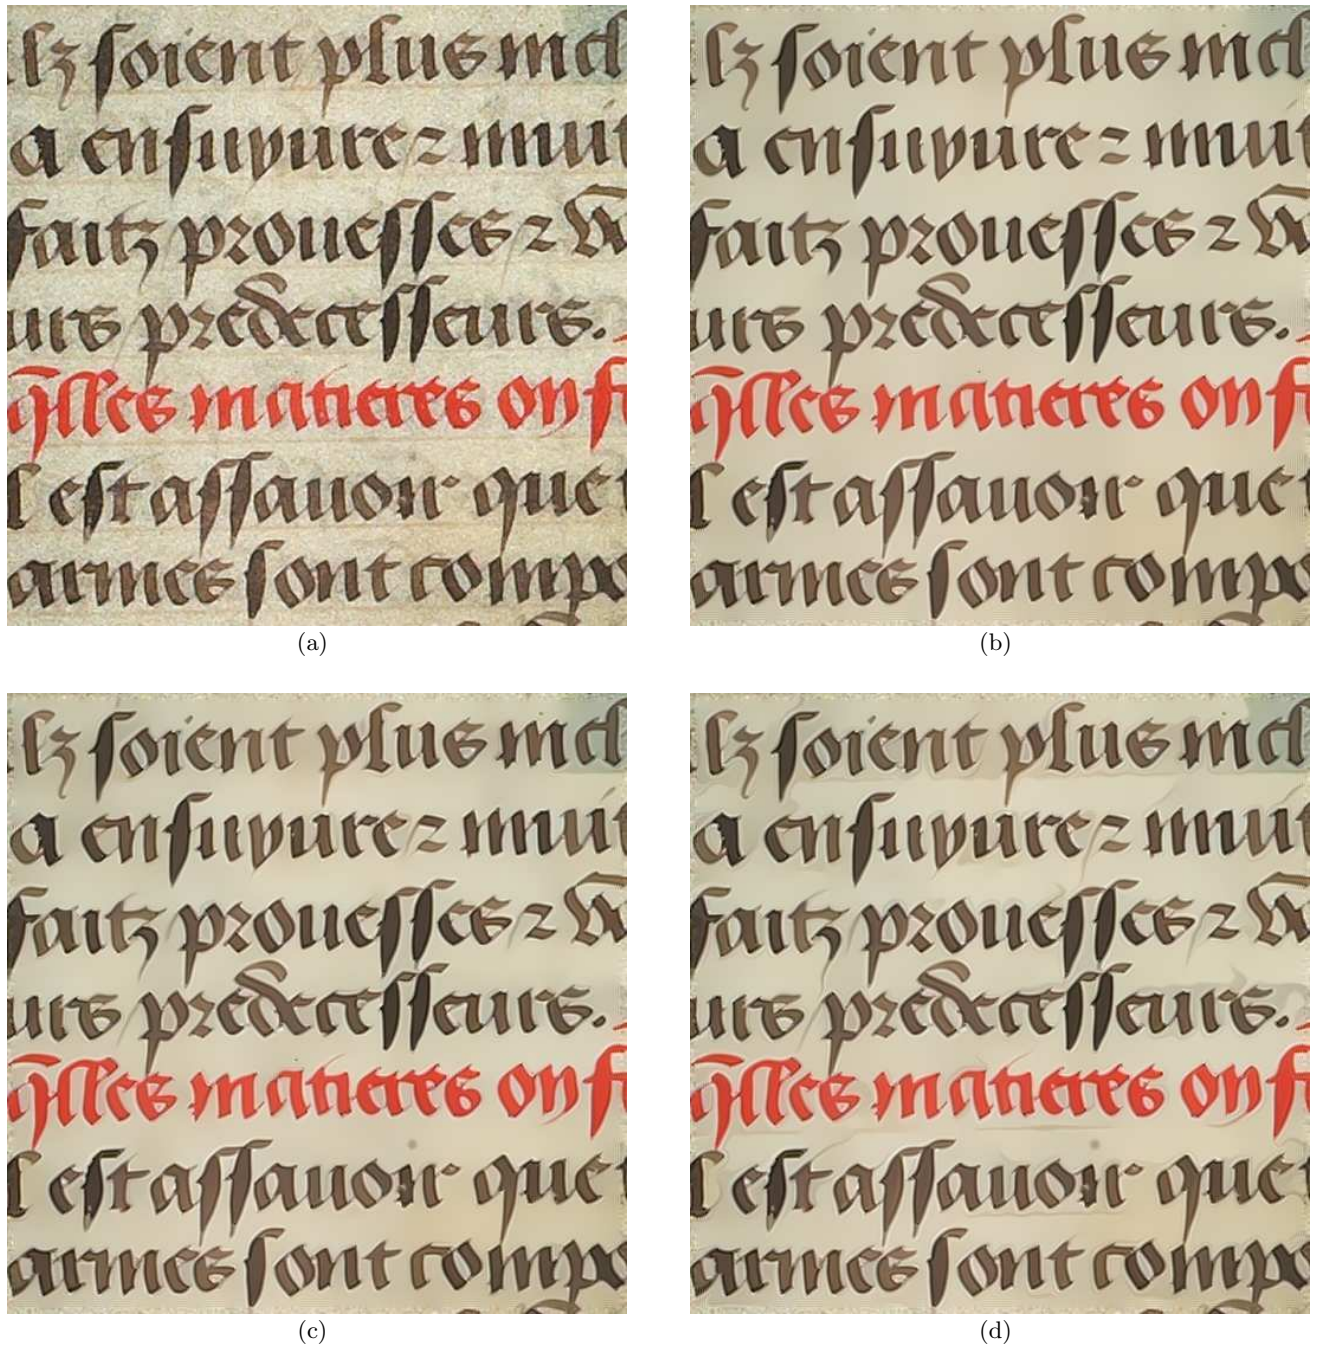 lz ſoient plus
a enſuyure ⁊
faitz proueſſes ⁊
urs predeceſſeurs.
q̄lles matieres on
eſt aſſauoir que
armes ſont compo
(a)
lz ſoient plus
a enſuyure ⁊
faitz proueſſes ⁊
urs predeceſſeurs.
q̄lles matieres on
eſt aſſauoir que
armes ſont compo
(b)
lz ſoient plus
a enſuyure ⁊
faitz proueſſes ⁊
urs predeceſſeurs.
q̄lles matieres on
eſt aſſauoir que
armes ſont compo
(c)
lz ſoient plus
a enſuyure ⁊
faitz proueſſes ⁊
urs predeceſſeurs.
q̄lles matieres on
eſt aſſauoir que
armes ſont compo
(d)